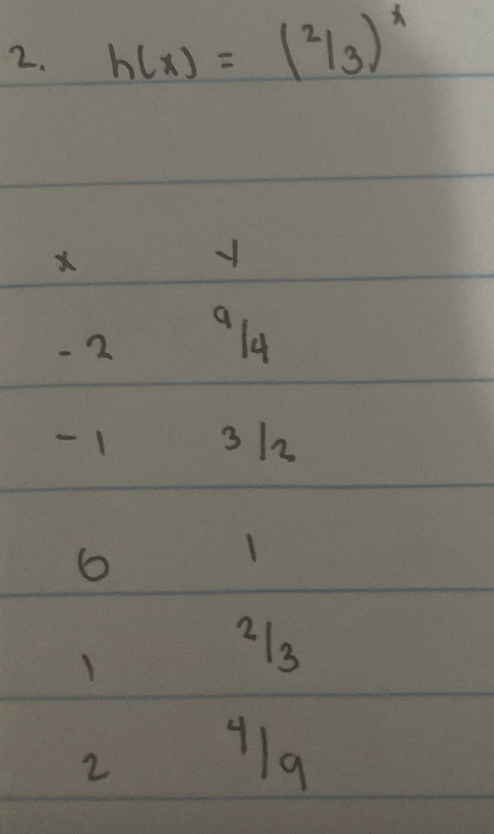 2. h(x) = (2/3)^x
x y
-2 9/4
-1 3/2
0 1
1 2/3
2 4/9